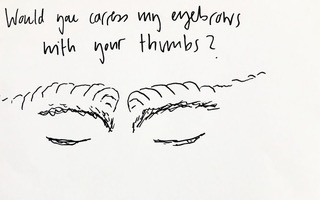 Would you caress my eyebrows
with your thumbs?